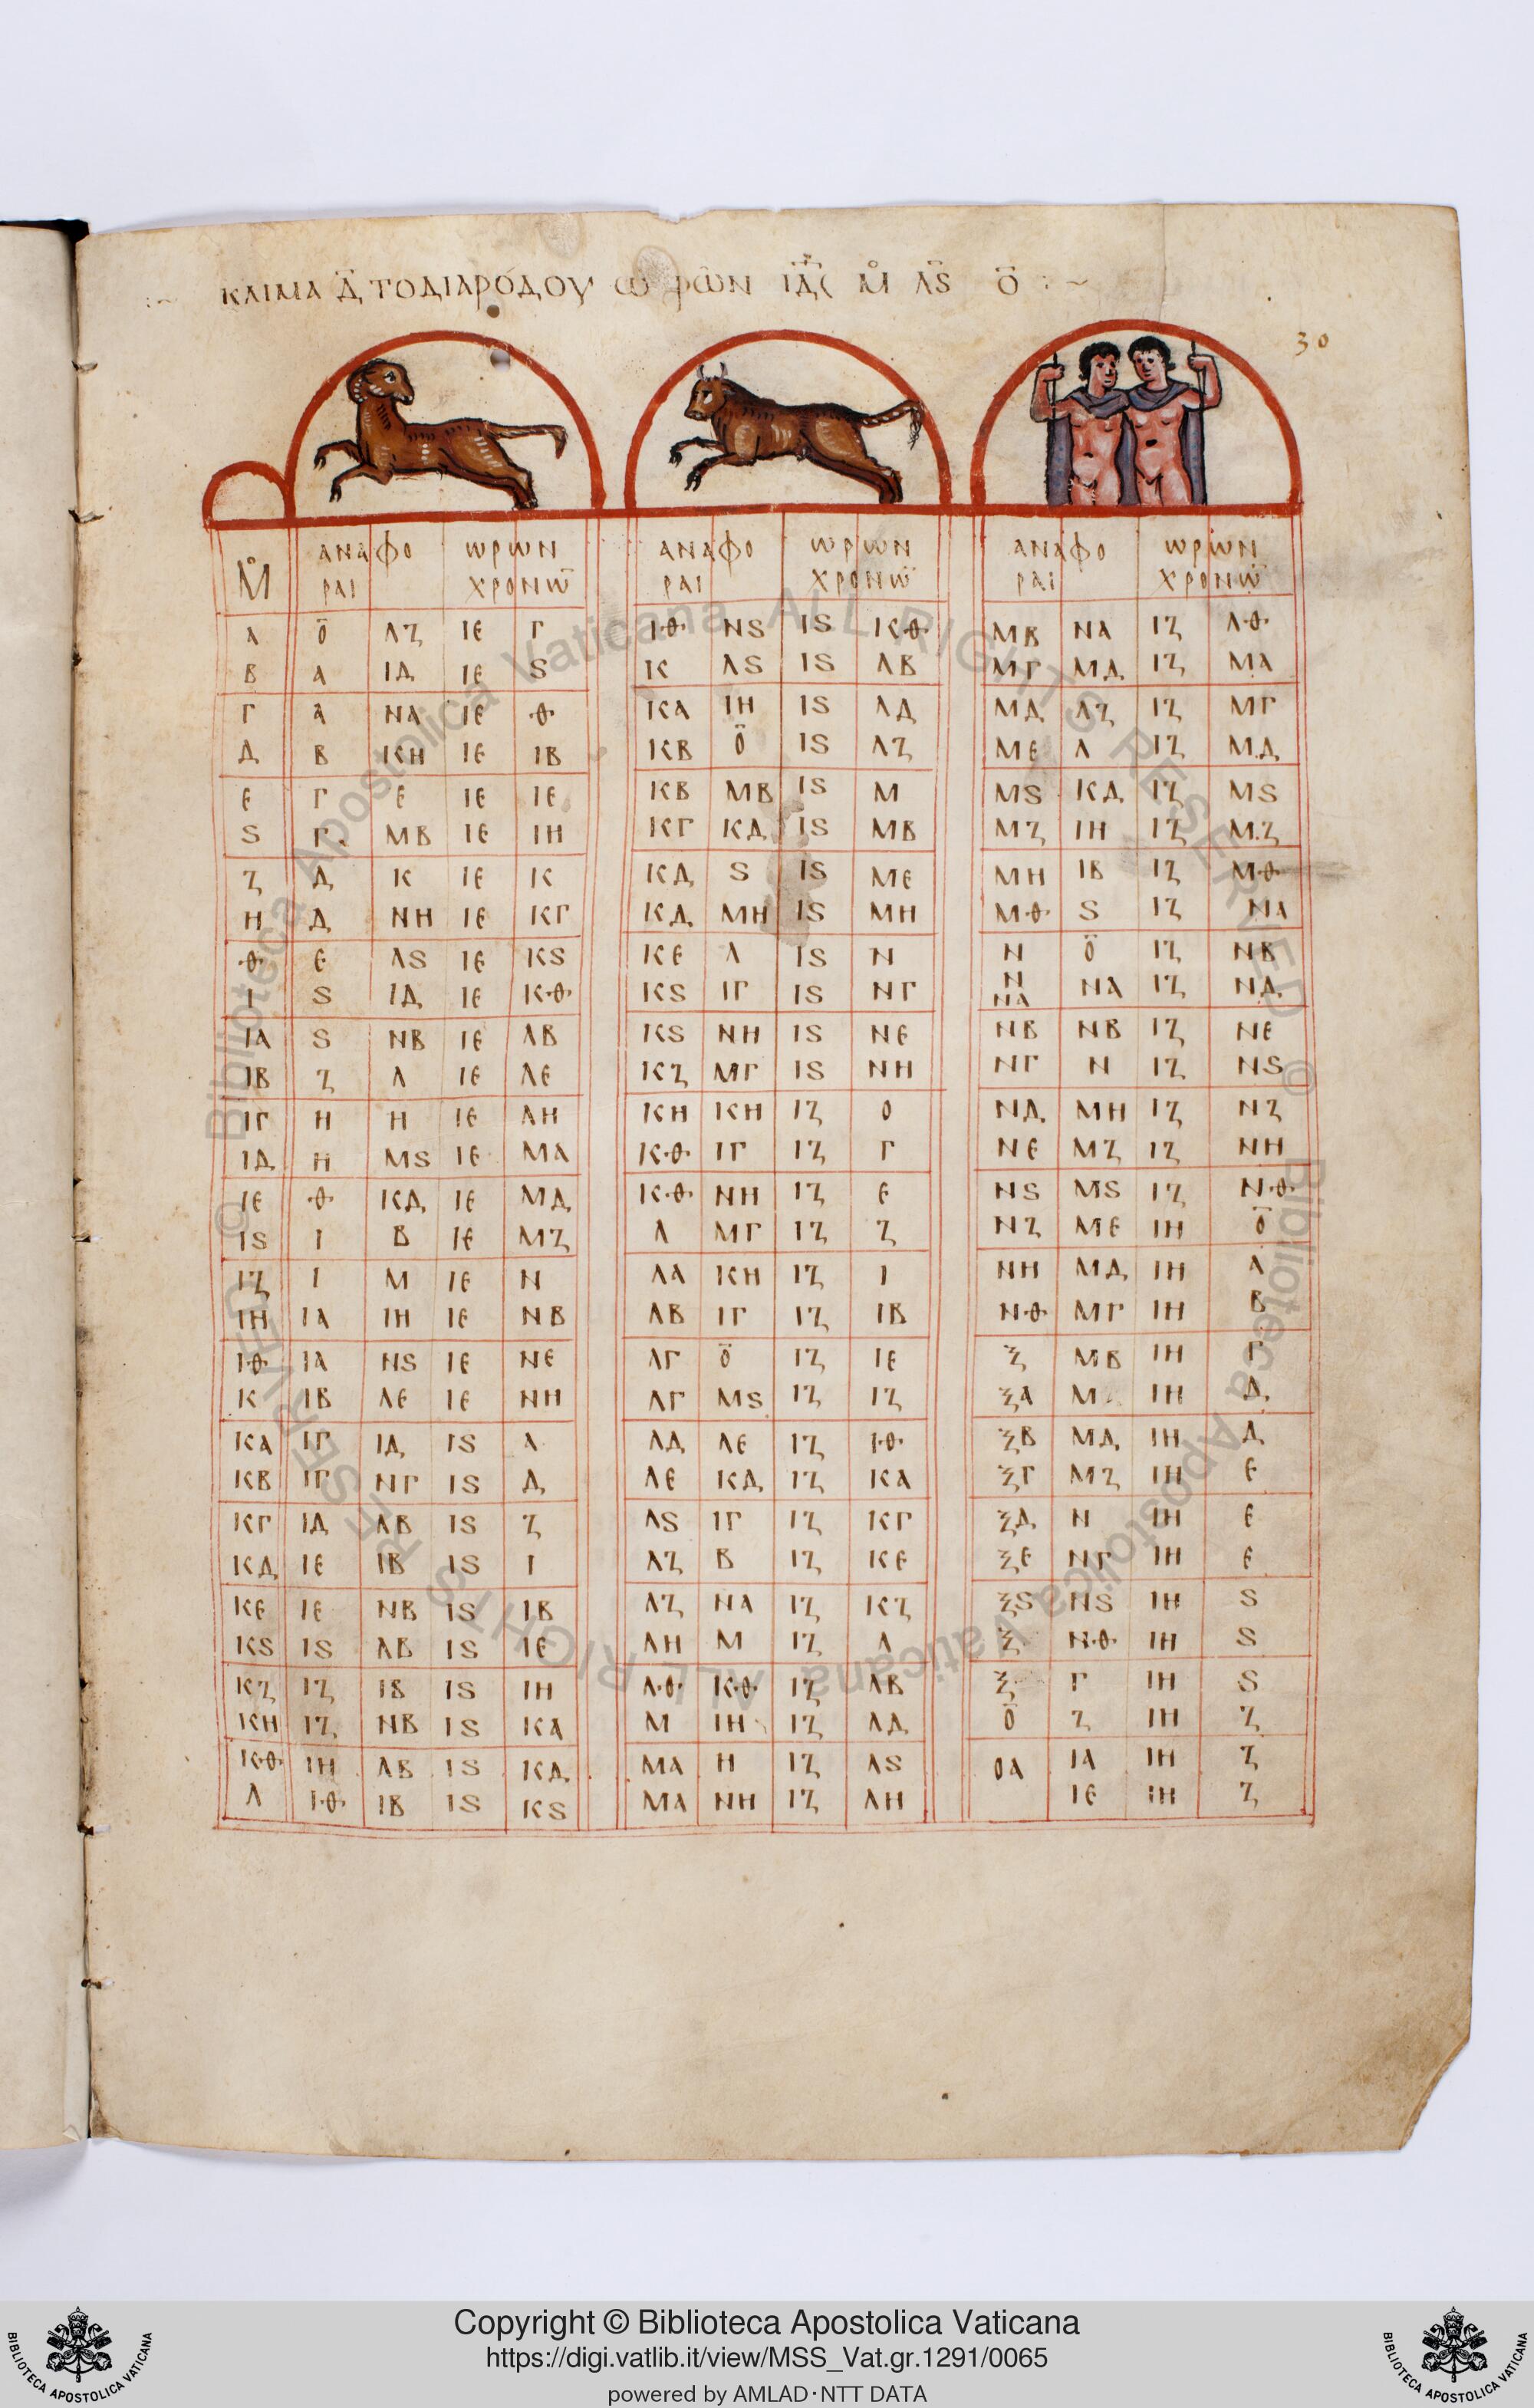 ΚΛΙΜΑ Δ ΤΟΔΙΑΡΟΔΟΥ ΩΡΩΝ ΙΔ Μ ΛϚ Ο
30
Μ ΑΝΑΦΟΡΑΙ ΩΡΩΝ ΧΡΟΝΩ ΑΝΑΦΟΡΑΙ ΩΡΩΝ ΧΡΟΝΩ ΑΝΑΦΟΡΑΙ ΩΡΩΝ ΧΡΟΝΩ
Α Ο ΛΖ ΙΕ Γ ΙΘ ΝϚ ΙϚ ΚΘ ΜΒ ΝΑ ΙΖ ΛΘ
Β Α ΙΔ ΙΕ Ϛ Κ ΛϚ ΙϚ ΛΒ ΜΓ ΜΔ ΙΖ ΜΑ
Γ Α ΝΑ ΙΕ Θ ΚΑ ΙΗ ΙϚ ΛΔ ΜΔ ΛΖ ΙΖ ΜΓ
Δ Β ΚΗ ΙΕ ΙΒ ΚΒ Ο ΙϚ ΛΖ ΜΕ Λ ΙΖ ΜΔ
Ε Γ Ε ΙΕ ΙΕ ΚΒ ΜΒ ΙϚ Μ ΜϚ ΚΔ ΙΖ ΜϚ
Ϛ Γ ΜΒ ΙΕ ΙΗ ΚΓ ΚΔ ΙϚ ΜΒ ΜΖ ΙΗ ΙΖ ΜΖ
Ζ Δ Κ ΙΕ Κ ΚΔ Ϛ ΙϚ ΜΕ ΜΗ ΙΒ ΙΖ ΜΘ
Η Δ ΝΗ ΙΕ ΚΓ ΚΔ ΜΗ ΙϚ ΜΗ ΜΘ Ϛ ΙΖ ΝΑ
Θ Ε ΛϚ ΙΕ ΚϚ ΚΕ Λ ΙϚ Ν Ν Ο ΙΖ ΝΒ
Ι Ϛ ΙΔ ΙΕ ΚΘ ΚϚ ΙΓ ΙϚ ΝΓ Ν ΝΑ ΝΑ ΙΖ ΝΔ
ΙΑ Ϛ ΝΒ ΙΕ ΛΒ ΚϚ ΝΗ ΙϚ ΝΕ ΝΒ ΝΒ ΙΖ ΝΕ
ΙΒ Ζ Λ ΙΕ ΛΕ ΚΖ ΜΓ ΙϚ ΝΗ ΝΓ Ν ΙΖ ΝϚ
ΙΓ Η Η ΙΕ ΛΗ ΚΗ ΚΗ ΙΖ Ο ΝΔ ΜΗ ΙΖ ΝΖ
ΙΔ Η ΜϚ ΙΕ ΜΑ ΚΘ ΙΓ ΙΖ Γ ΝΕ ΜΖ ΙΖ ΝΗ
ΙΕ Θ ΚΔ ΙΕ ΜΔ ΚΘ ΝΗ ΙΖ Ε ΝϚ ΜϚ ΙΖ ΝΘ
ΙϚ Ι Β ΙΕ ΜΖ Λ ΜΓ ΙΖ Ζ ΝΖ ΜΕ ΙΗ Ο
ΙΖ Ι Μ ΙΕ Ν ΛΑ ΚΗ ΙΖ Ι ΝΗ ΜΔ ΙΗ Α
ΙΗ ΙΑ ΙΗ ΙΕ ΝΒ ΛΒ ΙΓ ΙΖ ΙΒ ΝΘ ΜΓ ΙΗ Β
ΙΘ ΙΑ ΝϚ ΙΕ ΝΕ ΛΓ Ο ΙΖ ΙΕ Ξ ΜΒ ΙΗ Γ
Κ ΙΒ ΛΕ ΙΕ ΝΗ ΛΓ ΜϚ ΙΖ ΙΖ ΞΑ Μ ΙΗ Δ
ΚΑ ΙΓ ΙΔ ΙϚ Α ΛΔ ΛΕ ΙΖ ΙΘ ΞΒ ΜΔ ΙΗ Δ
ΚΒ ΙΓ ΝΓ ΙϚ Δ ΛΕ ΚΔ ΙΖ ΚΑ ΞΓ ΜΖ ΙΗ Ε
ΚΓ ΙΔ ΛΒ ΙϚ Ζ ΛϚ ΙΓ ΙΖ ΚΓ ΞΔ Ν ΙΗ Ε
ΚΔ ΙΕ ΙΒ ΙϚ Ι ΛΖ Β ΙΖ ΚΕ ΞΕ ΝΓ ΙΗ Ε
ΚΕ ΙΕ ΝΒ ΙϚ ΙΒ ΛΖ ΝΑ ΙΖ ΚΖ ΞϚ ΝϚ ΙΗ Ϛ
ΚϚ ΙϚ ΛΒ ΙϚ ΙΕ ΛΗ Μ ΙΖ Λ Ξ ΝΘ ΙΗ Ϛ
ΚΖ ΙΖ ΙΒ ΙϚ ΙΗ ΛΘ ΚΘ ΙΖ ΛΒ Ξ Γ ΙΗ Ϛ
ΚΗ ΙΖ ΝΒ ΙϚ ΚΑ Μ ΙΗ ΙΖ ΛΔ Ο Ζ ΙΗ Ζ
ΚΘ ΙΗ ΛΒ ΙϚ ΚΔ ΜΑ Η ΙΖ ΛϚ ΟΑ ΙΑ ΙΗ Ζ
Λ ΙΘ ΙΒ ΙϚ ΚϚ ΜΑ ΝΗ ΙΖ ΛΗ ΙΕ ΙΗ Ζ
© Biblioteca Apostolica Vaticana ALL RIGHTS RESERVED © Biblioteca Apostolica Vaticana ALL RIGHTS RESERVED
Copyright © Biblioteca Apostolica Vaticana
https://digi.vatlib.it/view/MSS_Vat.gr.1291/0065
powered by AMLAD·NTT DATA
BIBLIOTECA APOSTOLICA VATICANA
BIBLIOTECA APOSTOLICA VATICANA